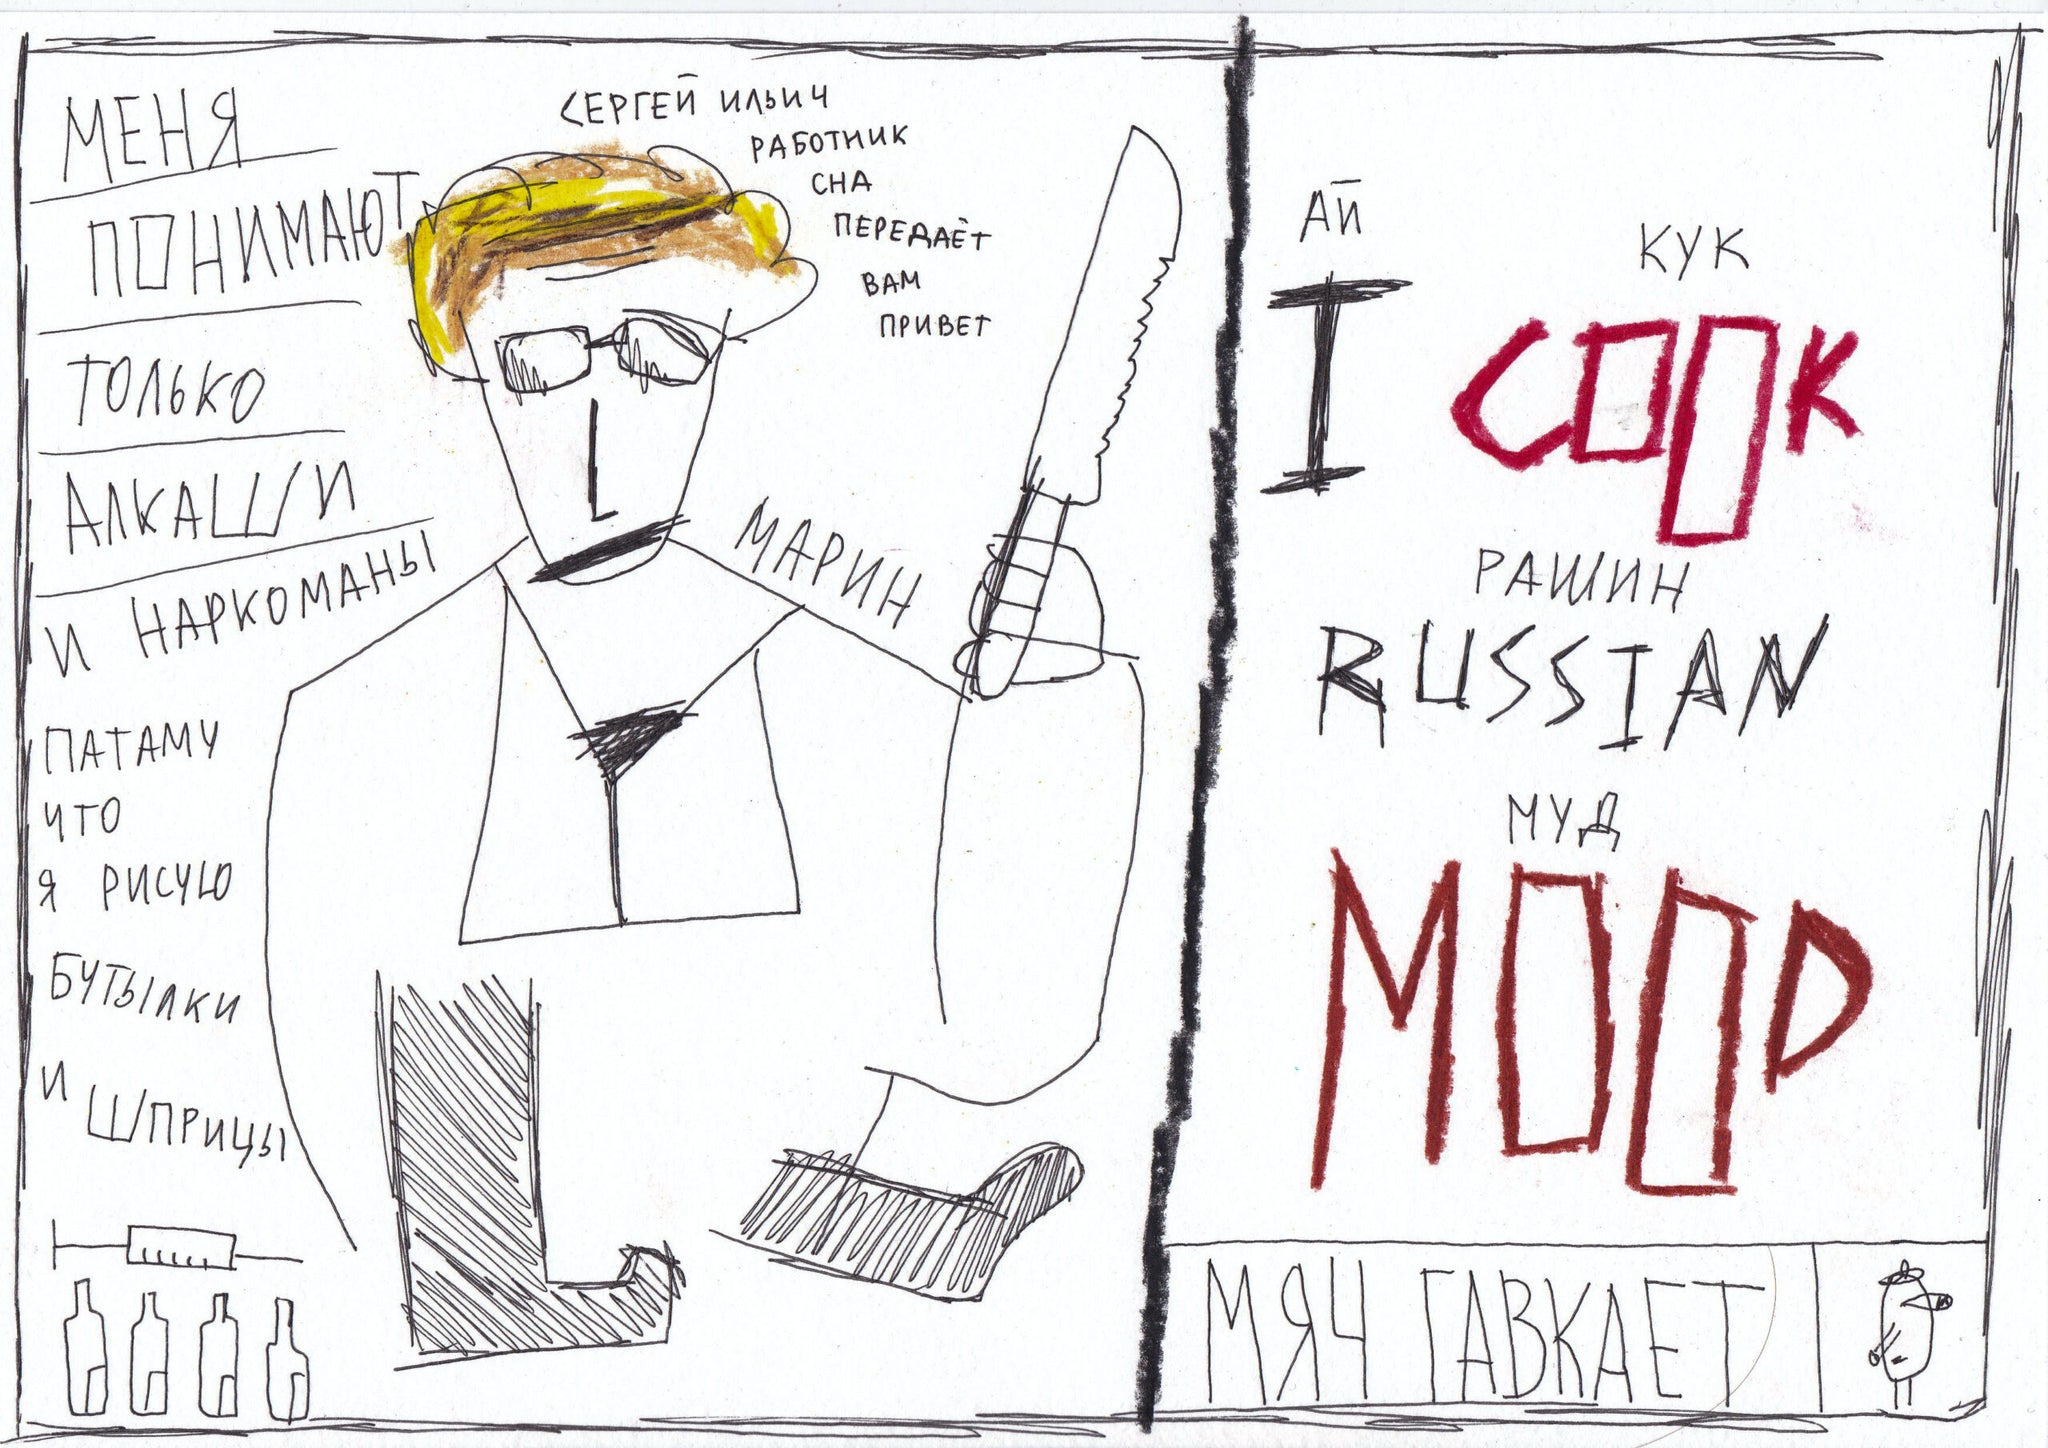 МЕНЯ
ПОНИМАЮТ
ТОЛЬКО
АЛКАШИ
И НАРКОМАНЫ
ПАТАМУ
ЧТО
Я РИСУЮ
БУТЫЛКИ
И ШПРИЦЫ
СЕРГЕЙ ИЛЬИЧ
РАБОТНИК
СНА
ПЕРЕДАЁТ
ВАМ
ПРИВЕТ
МАРИН
АЙ КУК
I COOK
РАШИН
RUSSIAN
МУД
MOOD
МЯЧ ГАВКАЕТ